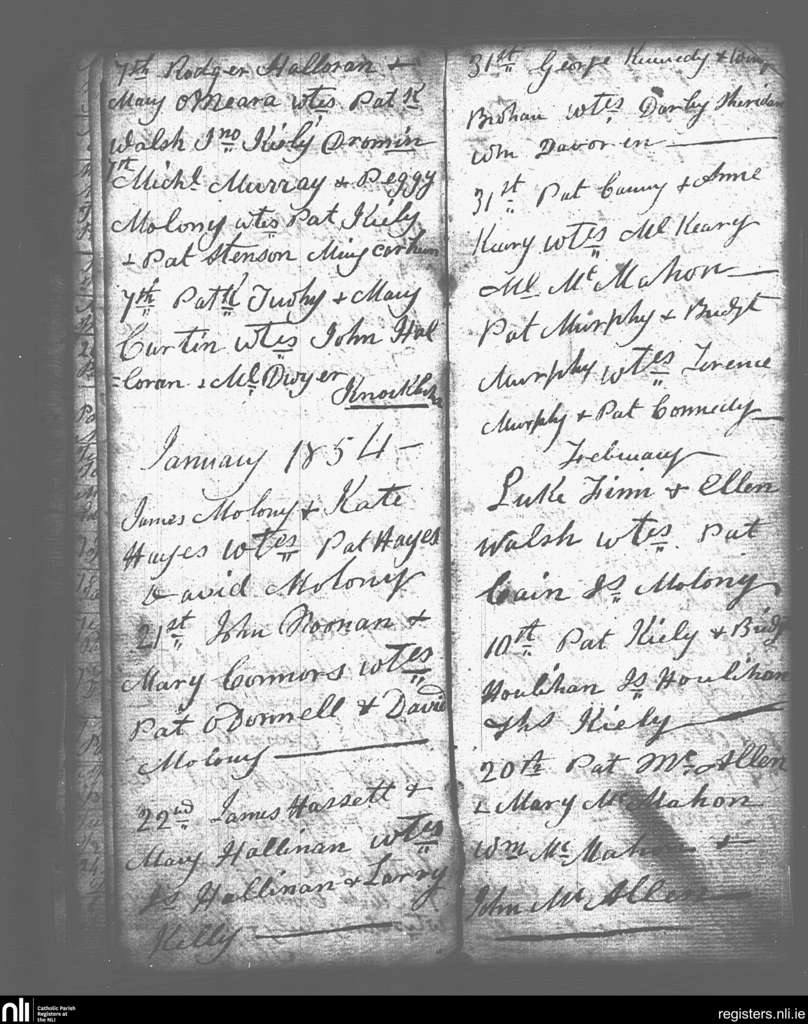 7th Rodger Halloran +
Mary OMeara wtes Pat K
Walsh Jno Kiely Dromin
7th Michl Murray + Peggy
Molony wtes Pat Kiely
+ Pat Stenson
7th Patk Tuohy + Mary
Curtin wtes John Hal
=loran + Ml Dwyer
January 1854 —
James Molony + Kate
Hayes wtes Pat Hayes
David Molony
21st John Noonan +
Mary Connors wtes
Pat ODonnell & David
Molony
22nd James Hassett +
Mary Hallinan wtes
Js Hallinan & Larry
Kelly
31st George Kennedy +
Brohan wtes Darby Sheridan
Wm Davoren
31st Pat Canny & Anne
Keary wtes Ml Keary
Ml McMahon
Pat Murphy & Bridgt
Murphy wtes Terence
Murphy & Pat Connedy
February
Luke Finn & Ellen
Walsh wtes Pat
Cain Js Molony
10th Pat Kiely & Bridgt
Houlihan Js Houlihan
Ths Kiely
20th Pat McAllen
& Mary McMahon
Wm McMahon +
John McAllen
nli
Catholic Parish
Registers at
the NLI
registers.nli.ie